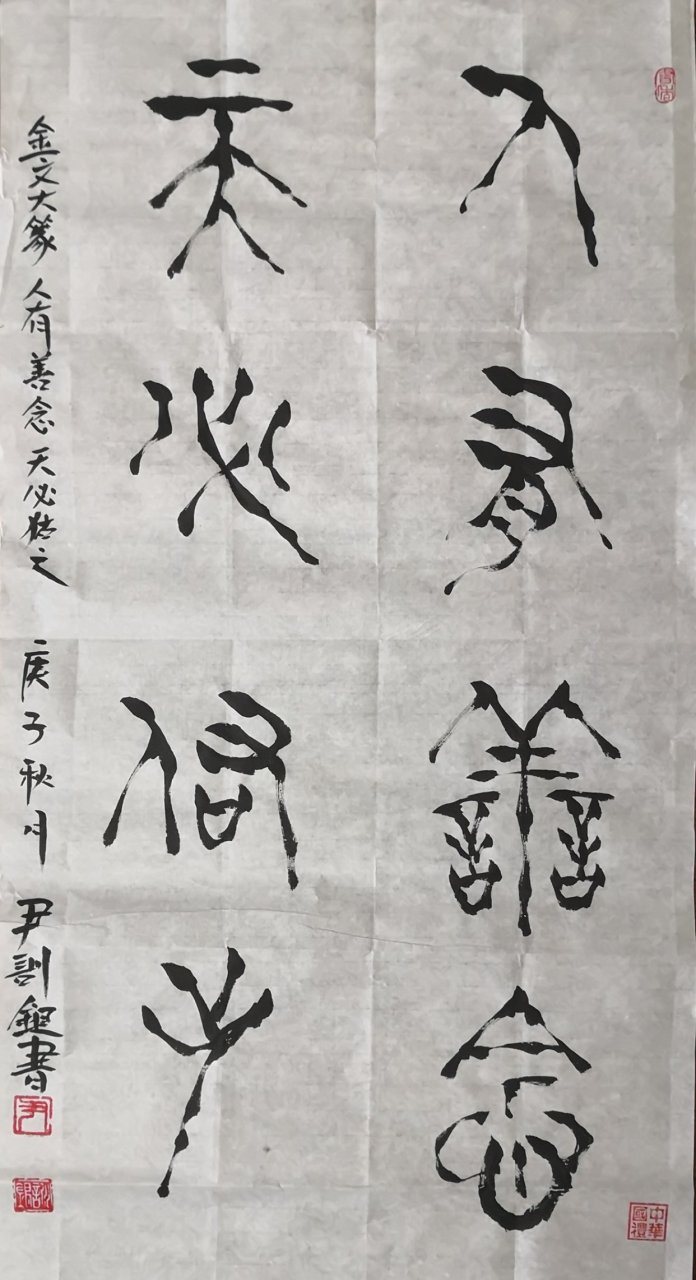 人有善念
天必佑之
金文大篆 人有善念天必佑之 庚子秋月 尹訓書
尹
中華國禮